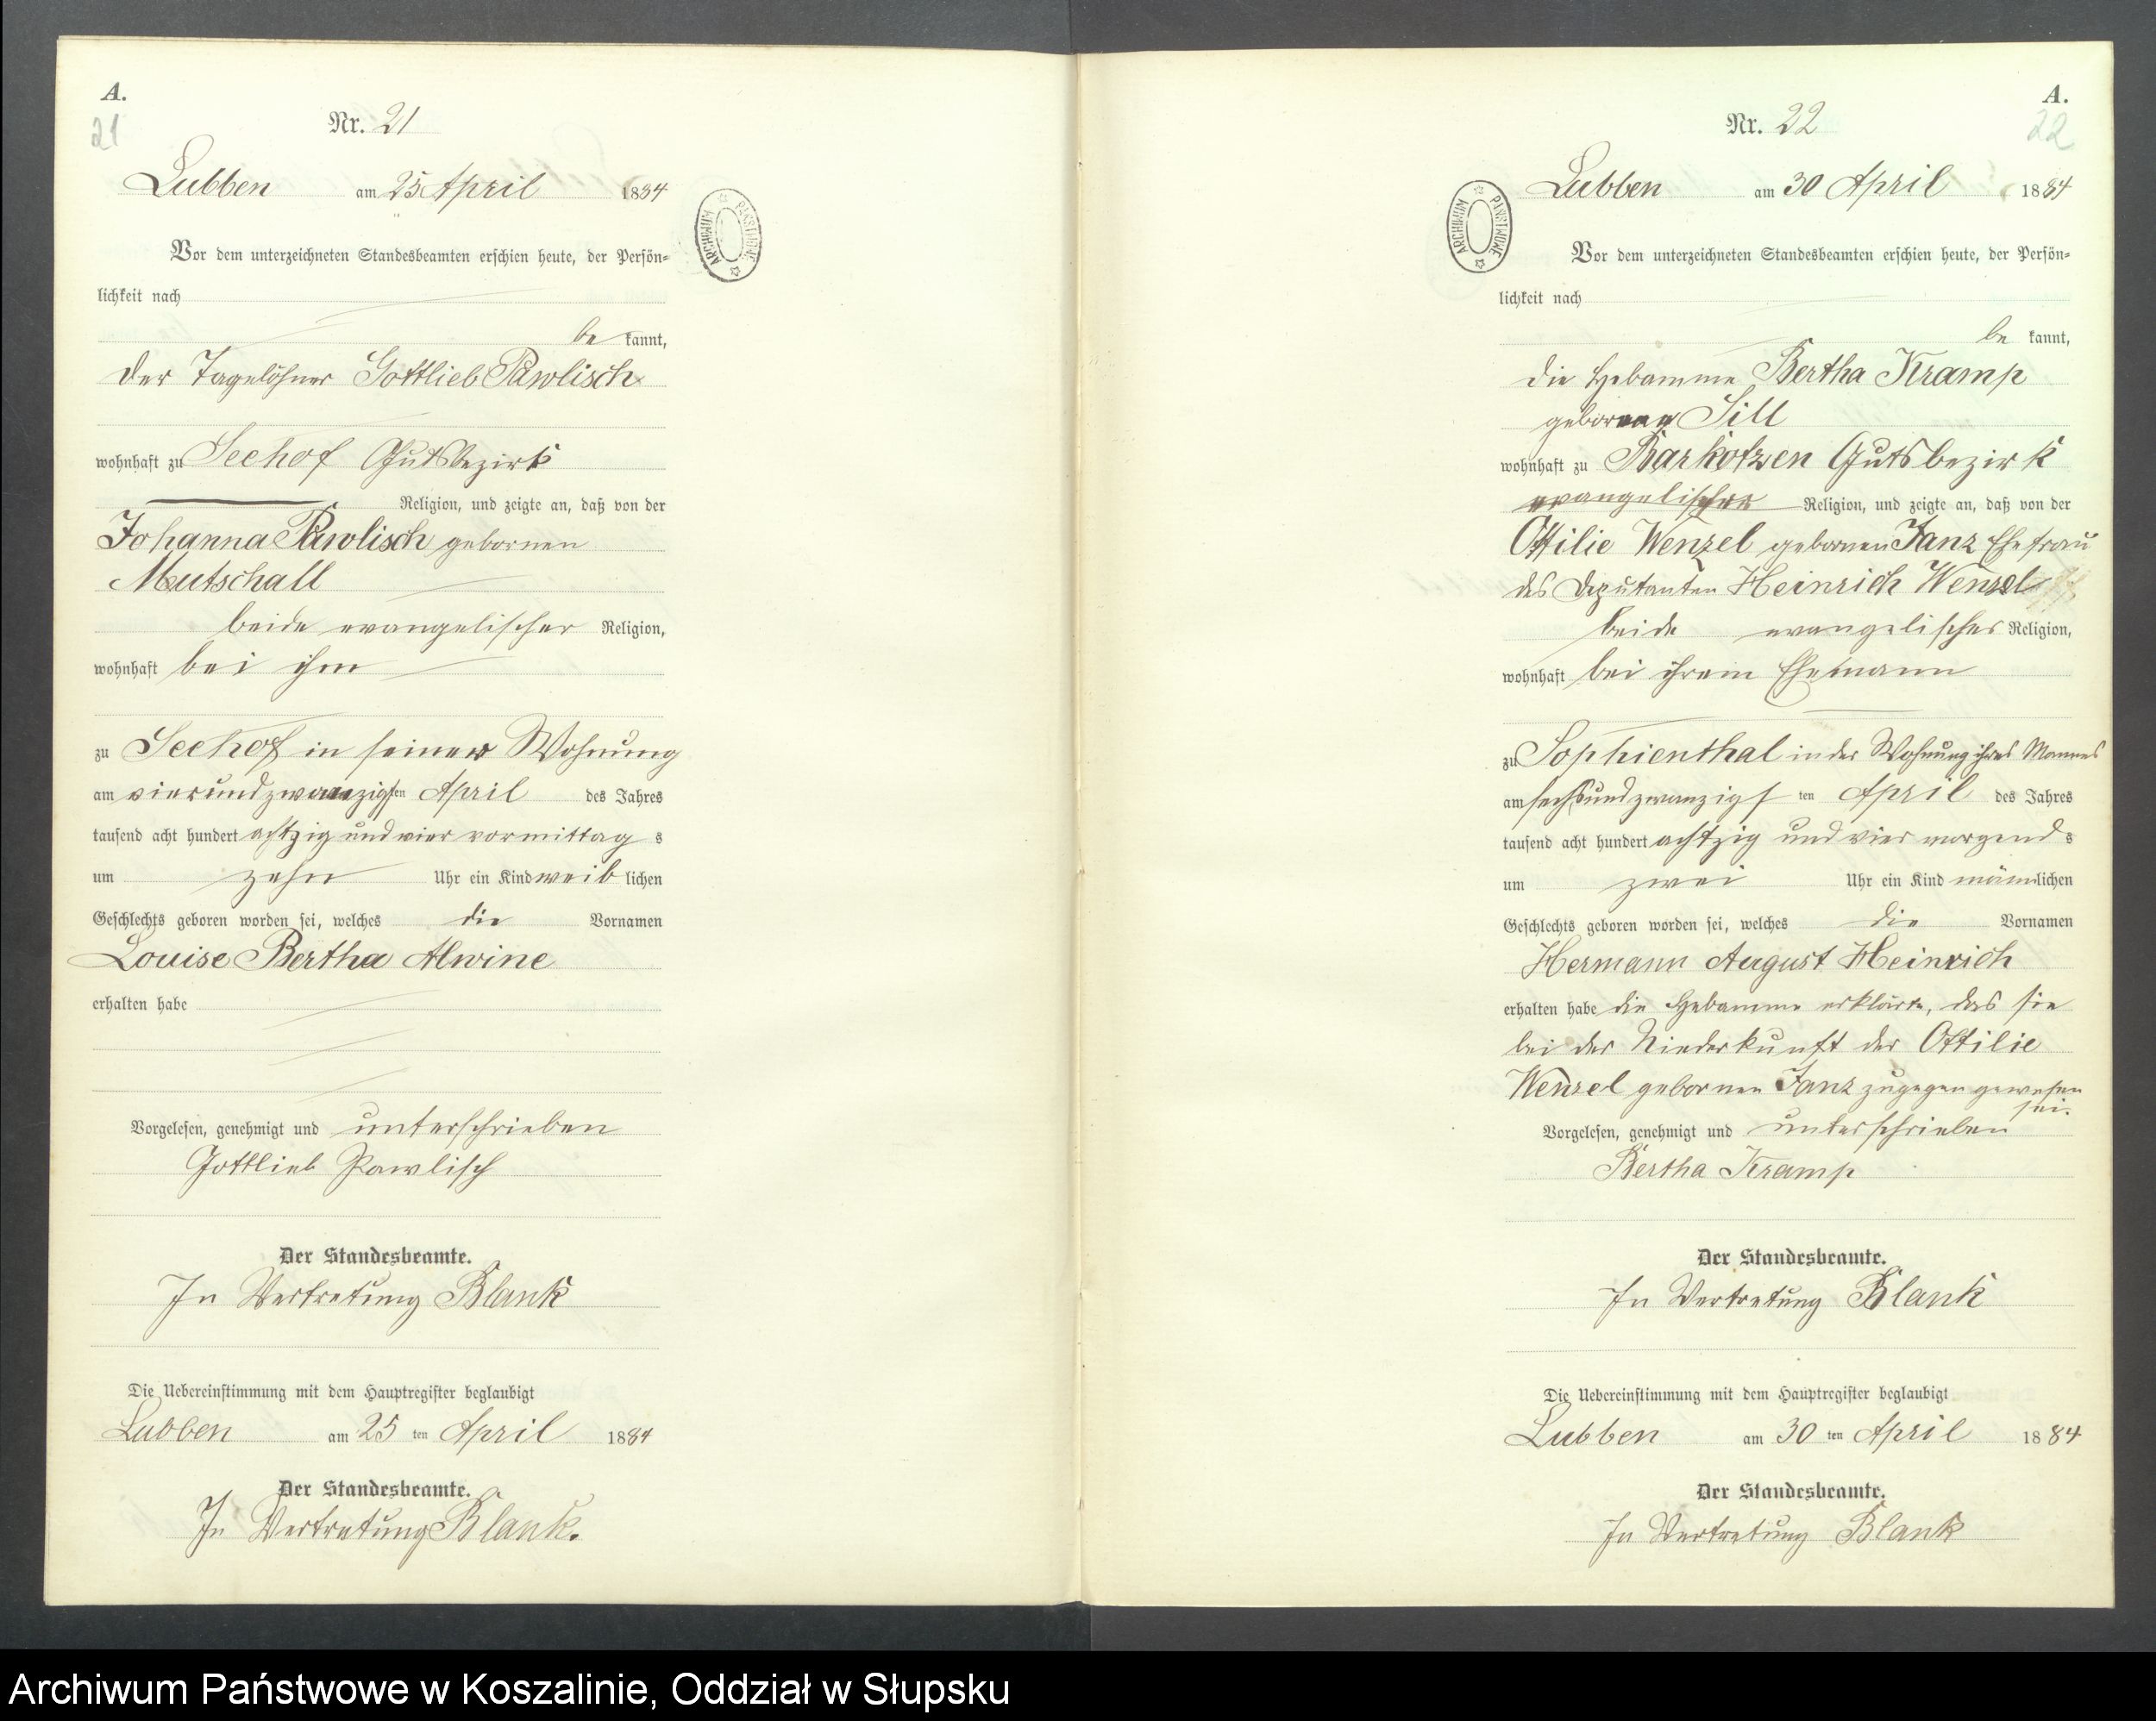 A.
21
Nr. 21
Lubben am 25 April 1884
ARCHIWUM PAŃSTWOWE
Vor dem unterzeichneten Standesbeamten erschien heute, der Persön-
lichkeit nach
be kannt,
der Tagelöhner Gottlieb Pawlisch
wohnhaft zu Seehof Gutsbezirk
Religion, und zeigte an, daß von der
Johanna Pawlisch gebornen
Mutschall
beide evangelischer Religion,
wohnhaft bei ihm
zu Seehof in seiner Wohnung
am vierundzwanzigsten April des Jahres
tausend acht hundert achtzig und vier vormittag s
um zehn Uhr ein Kind weib lichen
Geschlechts geboren worden sei, welches die Vornamen
Louise Bertha Alwine
erhalten habe
Vorgelesen, genehmigt und unterschrieben
Gottlieb Pawlisch
Der Standesbeamte.
In Vertretung Blank
Die Uebereinstimmung mit dem Hauptregister beglaubigt
Lubben am 25 ten April 1884
Der Standesbeamte.
In Vertretung Blank.
A.
22
Nr. 22
Lubben am 30 April 1884
ARCHIWUM PAŃSTWOWE
Vor dem unterzeichneten Standesbeamten erschien heute, der Persön-
lichkeit nach
be kannt,
die Hebamme Bertha Kramp
geborene Sill
wohnhaft zu Barkotzen Gutsbezirk
evangelischer Religion, und zeigte an, daß von der
Ottilie Wenzel gebornen Janz Ehefrau
des Deputanten Heinrich Wenzel
beide evangelischer Religion,
wohnhaft bei ihrem Ehemann
zu Sophienthal in der Wohnung ihres Mannes
am sechsundzwanzigs ten April des Jahres
tausend acht hundert achtzig und vier morgend s
um zwei Uhr ein Kind männlichen
Geschlechts geboren worden sei, welches die Vornamen
Hermann August Heinrich
erhalten habe die Hebamme erklärte, das sie
bei der Niederkunft der Ottilie
Wenzel gebornen Janz zugegen gewesen
sei.
Vorgelesen, genehmigt und unterschrieben
Bertha Kramp
Der Standesbeamte.
In Vertretung Blank
Die Uebereinstimmung mit dem Hauptregister beglaubigt
Lubben am 30 ten April 1884
Der Standesbeamte.
In Vertretung Blank
Archiwum Państwowe w Koszalinie, Oddział w Słupsku